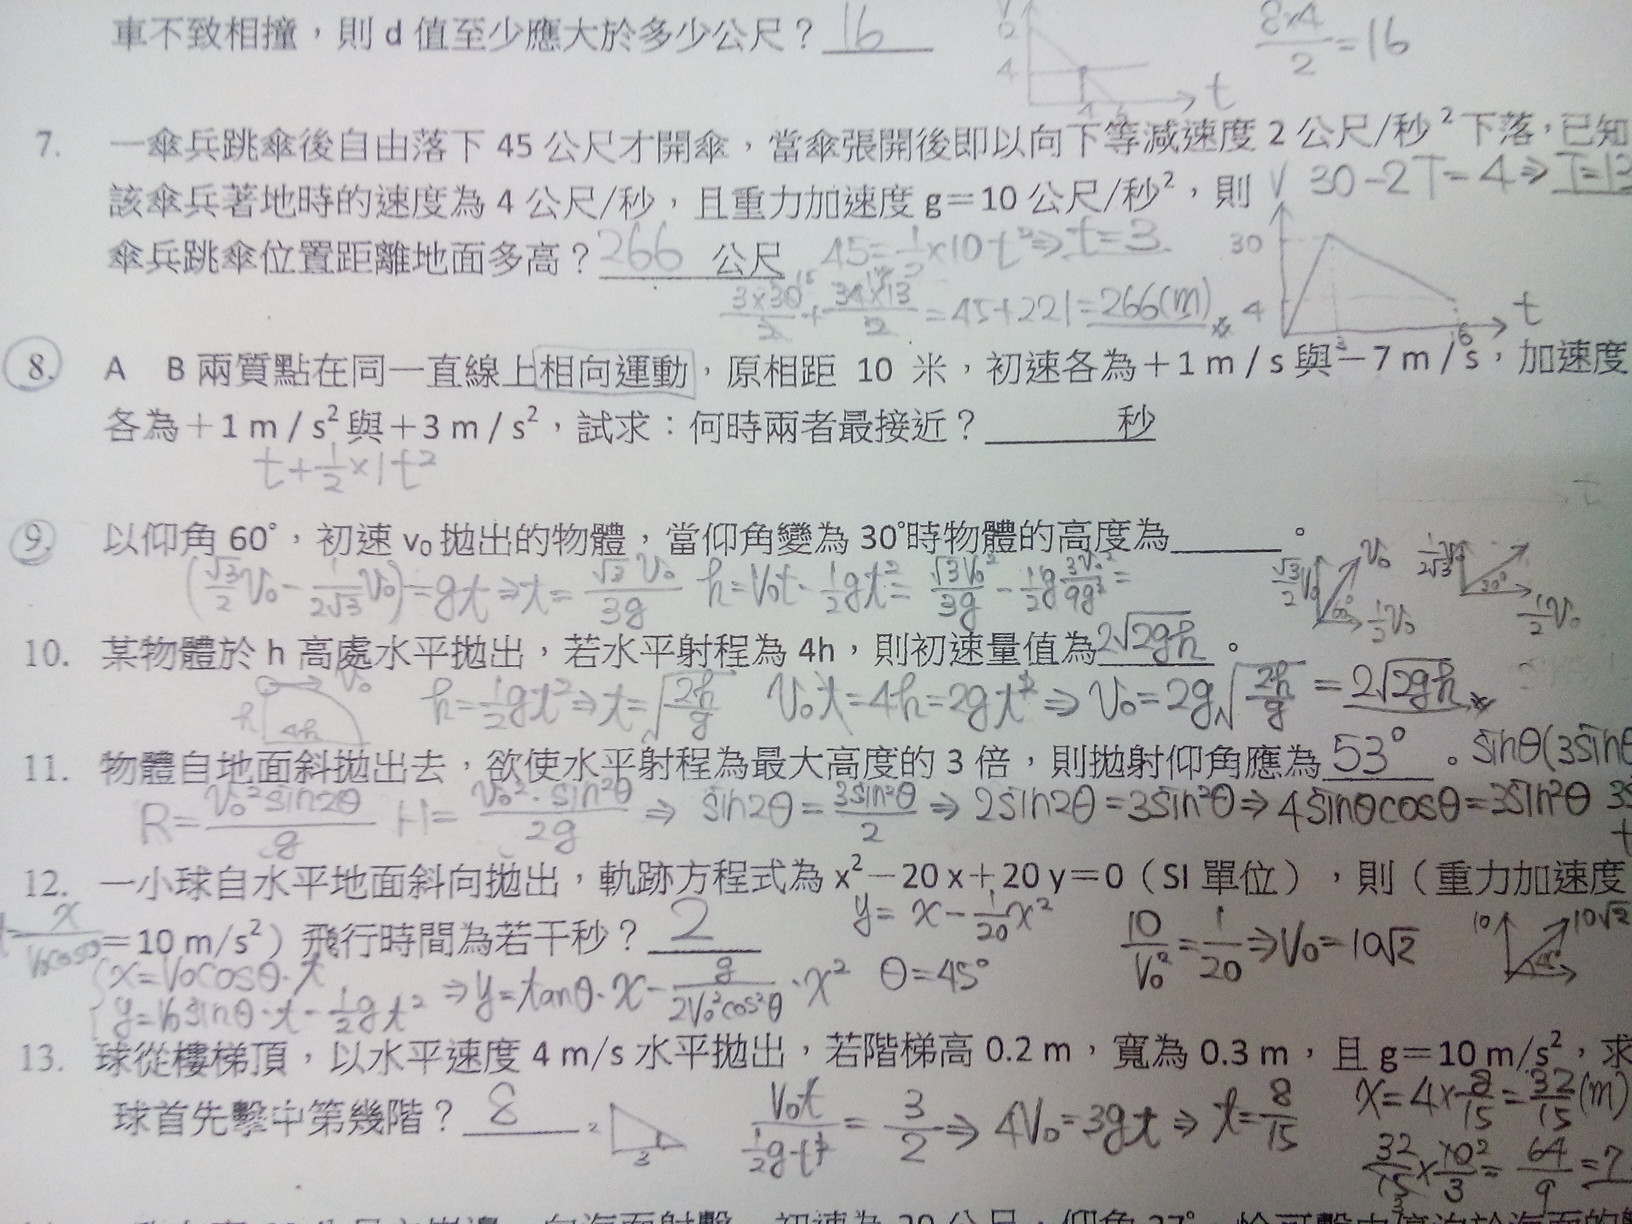 車不致相撞，則 d 值至少應大於多少公尺？ 16
8×4/2=16
4
t
7. 一傘兵跳傘後自由落下 45 公尺才開傘，當傘張開後即以向下等減速度 2 公尺/秒² 下落，已知
該傘兵著地時的速度為 4 公尺/秒，且重力加速度 g＝10 公尺/秒²，則 V 30-2T=4⇒T=13
傘兵跳傘位置距離地面多高？ 266 公尺 45=1/2×10t²⇒t=3 30
3×30/2+34×13/2=45+221=266(m) 4 t
8. A B 兩質點在同一直線上相向運動，原相距 10 米，初速各為＋1 m / s 與－7 m / s，加速度
各為＋1 m / s² 與＋3 m / s²，試求：何時兩者最接近？ 秒
t+1/2×1t²
9. 以仰角 60°，初速 v₀ 拋出的物體，當仰角變為 30°時物體的高度為 。
(√3/2V₀-1/2√3V₀)=gt⇒t=√3V₀/3g h=V₀t-1/2gt²=√3V₀²/3g-1/2g3V₀²/9g²=
√3/2V₀ V₀ 60° 1/2V₀ 1/2√3V₀ 30° 1/2V₀
10. 某物體於 h 高處水平拋出，若水平射程為 4h，則初速量值為 2√2gh 。
V₀ h 4h h=1/2gt²⇒t=√2h/g V₀t=4h=2gt²⇒V₀=2g√2h/g=2√2gh
11. 物體自地面斜拋出去，欲使水平射程為最大高度的 3 倍，則拋射仰角應為 53° 。
R=V₀²sin2θ/g H=V₀²·sin²θ/2g ⇒ sin2θ=3sin²θ/2 ⇒ 2sin2θ=3sin²θ⇒4sinθcosθ=3sin²θ
12. 一小球自水平地面斜向拋出，軌跡方程式為 x²－20 x＋20 y＝0（SI 單位），則（重力加速度
y=x-1/20x²
＝10 m/s²）飛行時間為若干秒？ 2 10/V₀²=1/20⇒V₀=10√2 10 10√2 45°
x=V₀cosθ·t
y=V₀sinθ·t-1/2gt² ⇒y=tanθ·x-g/2V₀²cos²θ·x² θ=45°
13. 球從樓梯頂，以水平速度 4 m/s 水平拋出，若階梯高 0.2 m，寬為 0.3 m，且 g＝10 m/s²，求
球首先擊中第幾階？ 8 2 3 V₀t/1/2gt²=3/2⇒4V₀=3gt⇒t=8/15 x=4×8/15=32/15(m)
32/15×10/3=64/9=7